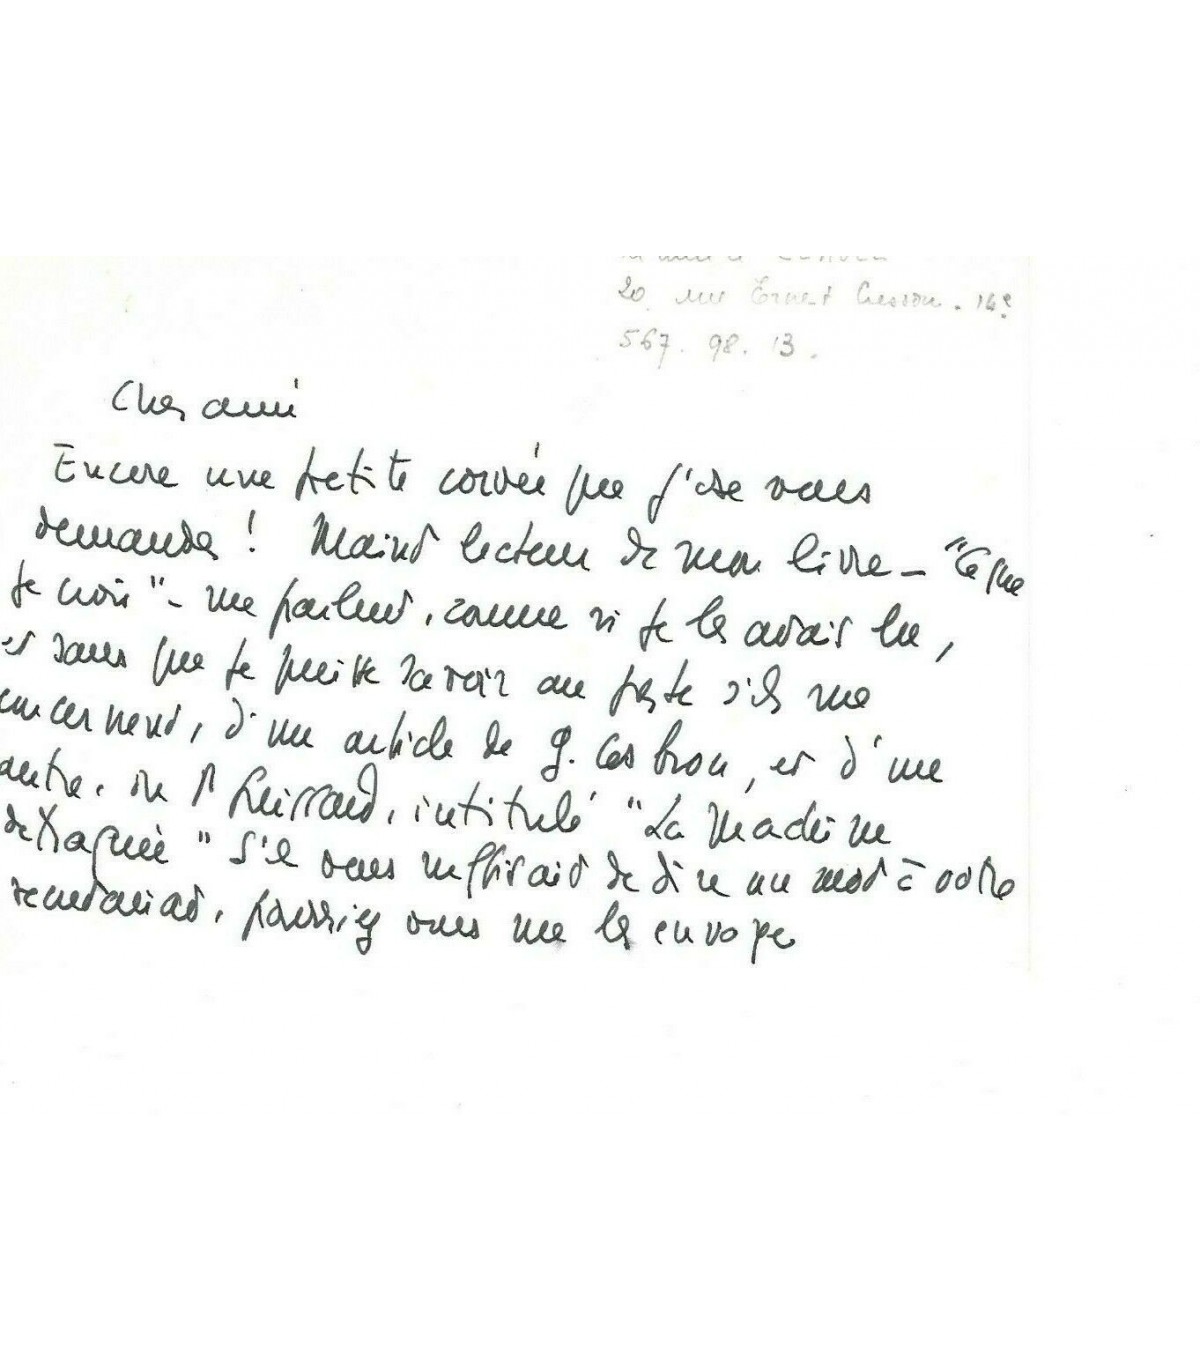 20 rue Ernest Cresson. 14e
567. 98. 13.
Cher ami
Encore une petite corvée que j'ose vous
demander ! Maint lecteur de mon livre – "Ce que
je crois" – me parlent, comme si je les avais lu,
et sans que je puisse savoir au juste s'ils me
concernent, d'un article de G. , et d'un
autre, de , intitulé "La Machine
détraquée" S'il vous suffisait de dire un mot à votre
secrétariat, pourriez vous me les envoyer